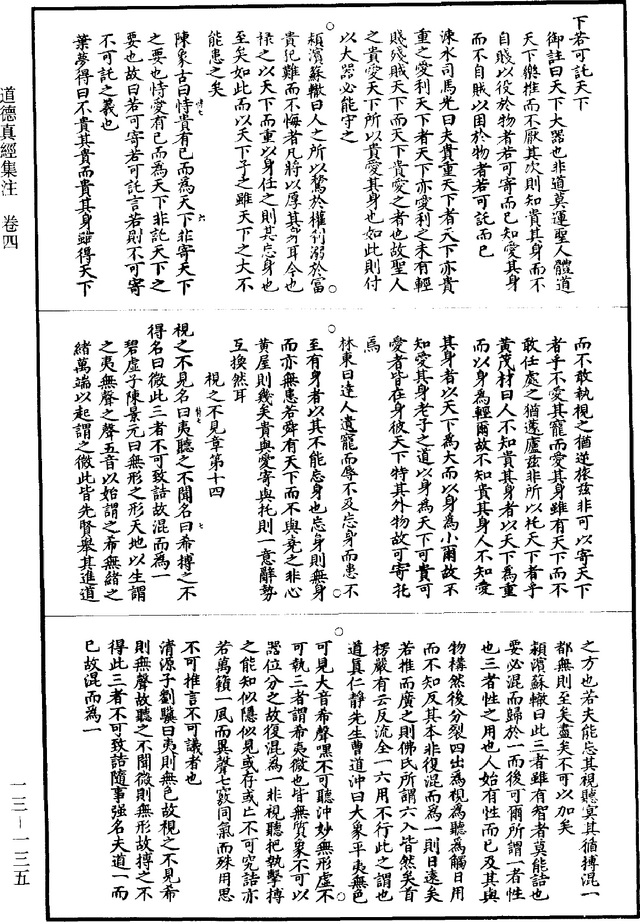 道德真經集注 卷四
一三-一三五
下若可託天下
御註曰天下大器也非道莫運聖人體道
天下樂推而不厭其次則知貴其身而不
自賤以役於物者若可寄而已知愛其身
而不自賊以困於物者若可託而已
涑水司馬光曰夫貴重天下者天下亦貴
重之愛利天下者天下亦愛利之未有輕
賤殘賊天下而天下貴愛之者也故聖人
之貴愛天下所以貴愛其身也如此則付
以大器必能守之
潁濱蘇轍曰人之所以驚於權利溺於富
貴犯難而不悔者凡將以厚其身耳今也
祿之以天下而重以身任之則其忘身也
至矣如此而以天下予之雖天下之大不
能患之矣
陳象古曰恃貴有已而為天下非寄天下
之要也恃愛有已而為天下非託天下之
要也故曰若可寄若可託言若則不可寄
不可託之義也
葉夢得曰不貴其貴而貴其身雖得天下
而不敢執視之猶逆旅茲非可以寄天下
者乎不愛其寵而愛其身雖有天下而不
敢任處之猶蘧廬茲非所以托天下者乎
黃茂材曰人不知貴其身者以天下為重
而以身為輕爾故不知貴其身人不知愛
其身者以天下為大而以身為小爾故不
知愛其身老子之道以身為天下可貴可
愛者皆在身彼天下特其外物故可寄托
焉
林東曰達人遺寵而辱不及忘身而患不
至有身者以其不能忘身也忘身則無身
而亦無患若舜有天下而不與堯之非心
黃屋則幾矣貴與愛寄與托則一意辭勢
互換然耳
視之不見章第十四
視之不見名曰夷聽之不聞名曰希搏之不
得名曰微此三者不可致詰故混而為一
碧虛子陳景元曰無形之形天地以生謂
之夷無聲之聲五音以始謂之希無緒之
緒萬端以起謂之微此皆先賢舉其進道
之方也若夫能忘其視聽冥其循搏混一
都無則至矣盡矣不可以加矣
潁濱蘇轍曰此三者雖有智者莫能詰也
要必混而歸於一而後可爾所謂一者性
也三者性之用也人始有性而已及其與
物構然後分裂四出為視為聽為觸日用
而不知反其本非復混而為一則日遠矣
若推而廣之則佛氏所謂六入皆然矣首
楞嚴有云反流全一六用不行此之謂也
道真仁靜先生曹道沖曰大象平夷無色
可見大音希聲嘿不可聽沖妙無形虛不
可執三者謂希夷微也皆無質象不可以
器位分之故復混為一非視聽把執擊搏
之能知似隱似見或存或亡不可究詰亦
若萬籟一風而異聲七竅同氣而殊用思
不可推言不可議者也
清源子劉驥曰夷則無色故視之不見希
則無聲故聽之不聞微則無形故搏之不
得此三者不可致詰隨事強名夫道一而
已故混而為一